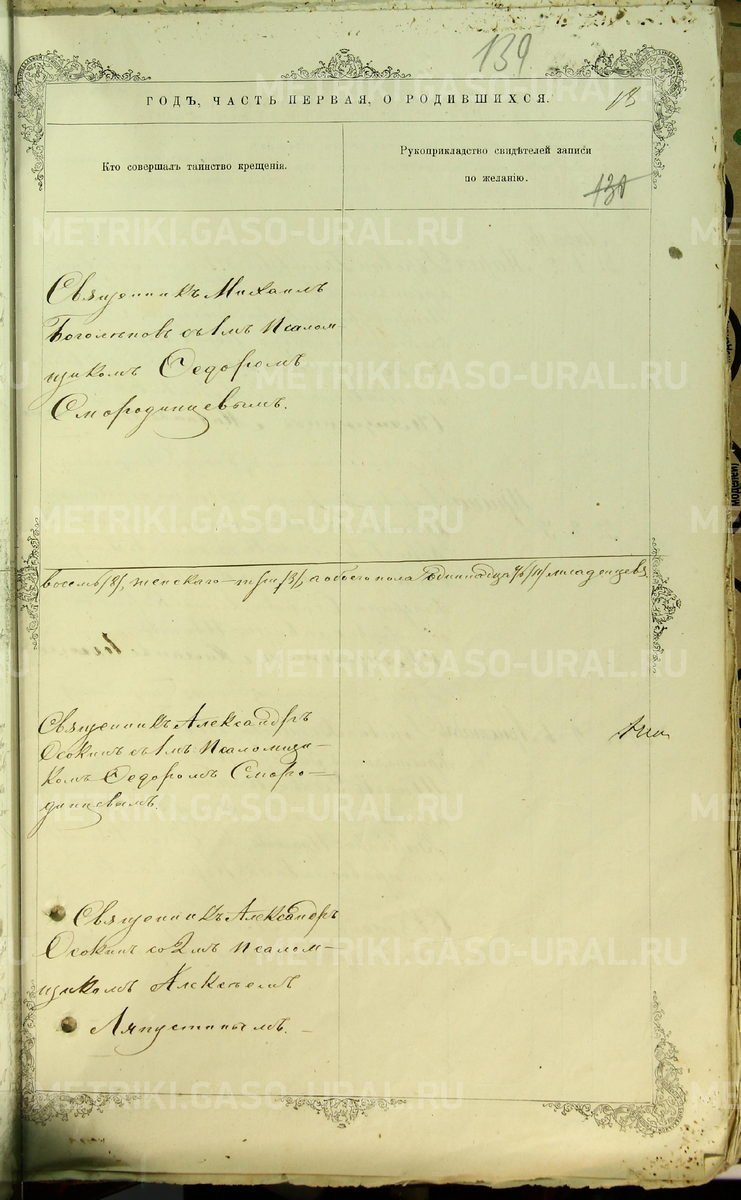 139
ГОДЪ, ЧАСТЬ ПЕРВАЯ, О РОДИВШИХСЯ.
13
Кто совершалъ таинство крещенія.
Рукоприкладство свидѣтелей записи
по желанію.
130
METRIKI.GASO-URAL.RU
Священникъ Михаилъ
Боголѣповъ съ 1мъ псалом-
щикомъ Ѳедоромъ
Смородинцевымъ.
восемь /8/, женскаго – три /3/, а обоего пола одиннадцать /11/ младенцевъ
Священникъ Александръ
Осокинъ съ 1мъ псаломщи-
комъ Ѳедоромъ Сморо-
динцевымъ.
Священникъ Александръ
Осокинъ со 2мъ псалом-
щикомъ Алексѣемъ
Ляпустинымъ.